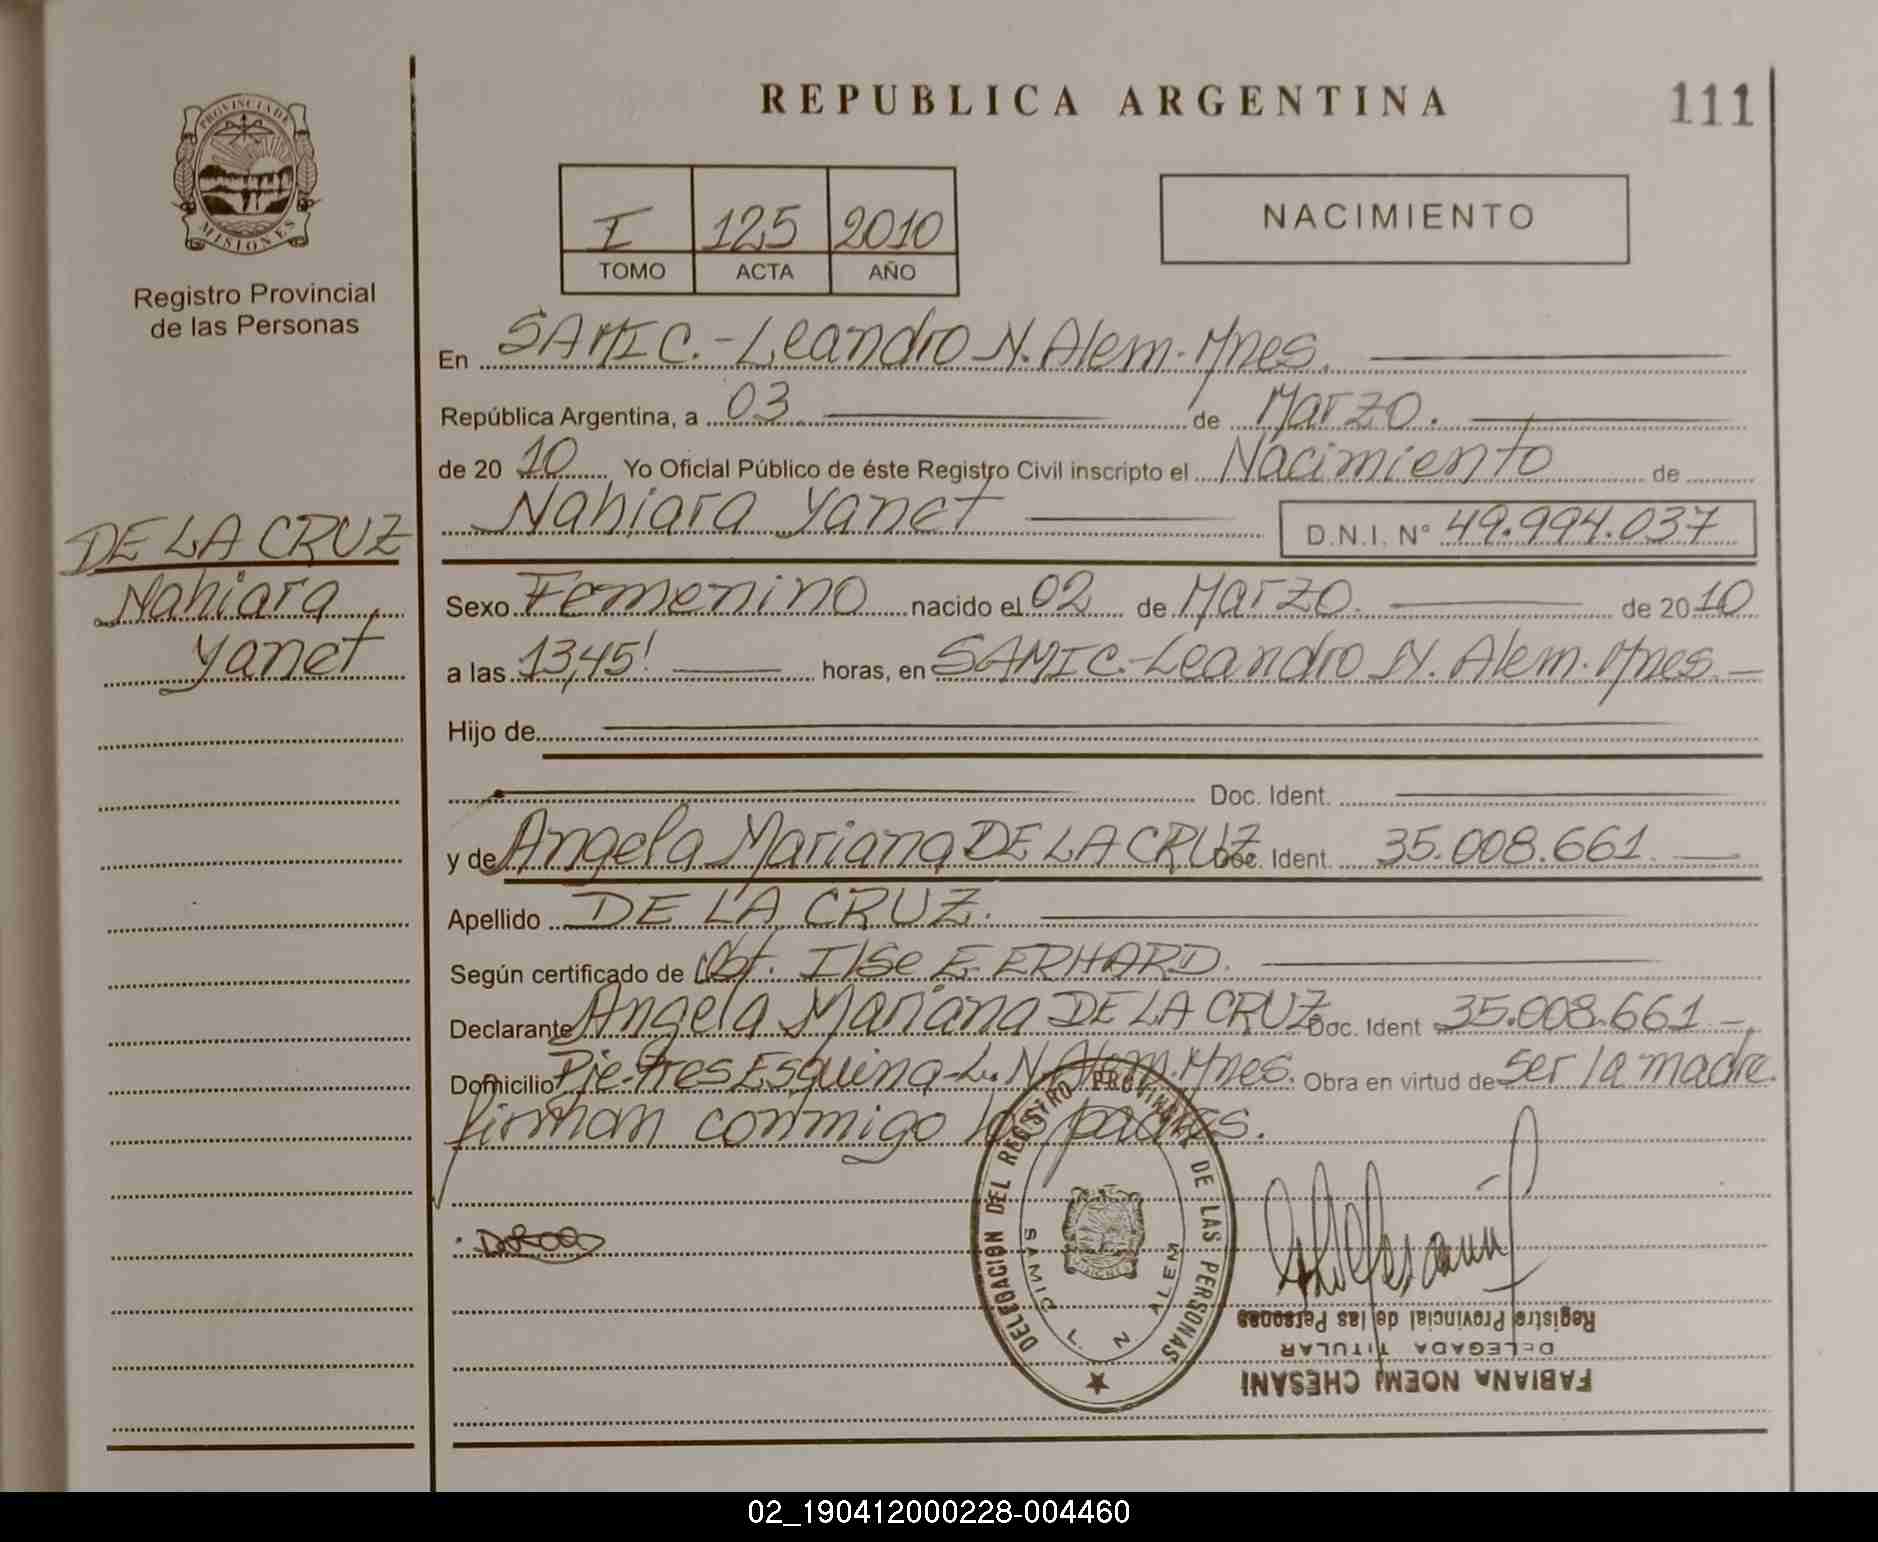 REPUBLICA ARGENTINA
111
PROVINCIA DE
MISIONES
Registro Provincial
de las Personas
I 125 2010
TOMO ACTA AÑO
NACIMIENTO
En SAMIC.-Leandro N. Alem-Mnes.
República Argentina, a 03 de Marzo.
de 20 10 Yo Oficial Público de éste Registro Civil inscripto el Nacimiento de
Nahiara Yanet D.N.I. N° 49.994.037
DE LA CRUZ
Nahiara
Yanet
Sexo Femenino nacido el 02 de Marzo. de 20 10
a las 13,45' horas, en SAMIC.-Leandro N. Alem-Mnes.-
Hijo de
Doc. Ident.
y de Angela Mariana DE LA CRUZ Doc. Ident. 35.008.661
Apellido DE LA CRUZ.
Según certificado de Obt. Ilse E. ERHARD.
Declarante Angela Mariana DE LA CRUZ Doc. Ident 35.008.661-
Domicilio Pje. Tres Esquina-L. N. Alem. Mnes. Obra en virtud de ser la madre.
firman conmigo los padres.
DELEGACION DEL REGISTRO PROVINCIAL DE LAS PERSONAS
SAMIC L. N. ALEM
MISIONES
Registro Provincial de las Personas
DELEGADA TITULAR
FABIANA NOEMI CHESANI
02_190412000228-004460